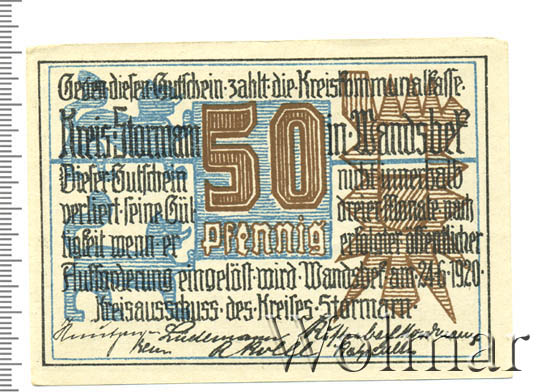 Gegen diesen Gutschein zahlt die Kreiskommunalkasse
Kreis Stormarn 50 in Wandsbek
Dieser Gutschein nicht innerhalb
verliert seine Gül dreier Monate nach
tigkeit wenn er Pfennig erfolgter öffentlicher
Aufforderung eingelöst wird. Wandsbek am 24.6.1920.
Kreisausschuss des Kreises Stormarn.
Lüdemann
Wolmar